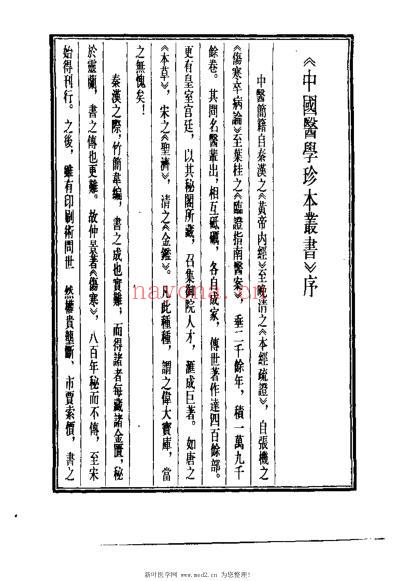 《中國醫學珍本叢書》序
中醫簡籍自秦漢之《黃帝内經》至晚清之《本經疏證》，自張機之
《傷寒卒病論》至葉桂之《臨證指南醫案》，垂二千餘年，積一萬九千
餘卷。其間名醫叢出，相互砥礪，各自成家，傳世著作達四百餘部。
更有皇室宫廷，以其秘閣所藏，召集御院人才，滙成巨著。如唐之
《本草》，宋之《聖濟》，清之《金鑑》。凡此種種，謂之偉大寶庫，當
之無愧矣！
秦漢之際，竹簡韋編，書之成也實難；而得諸者每藏諸金匱，秘
於靈蘭，書之傳也更難。故仲景著《傷寒》，八百年秘而不傳，至宋
始得刊行。之後，雖有印刷術問世 然權貴壟斷、市賈索價，書之
nayona.cn
新叶医学网 www.med2.cn 为您整理！